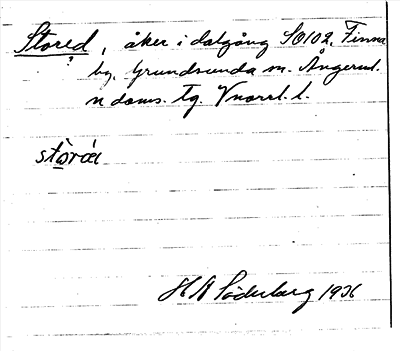 Stored, åker i dalgång SO102, Finna
? by, Grundsunda sn. Ångerml.
n doms. tg. Vnorrl. l.
stòrǽ
H A Söderberg 1936